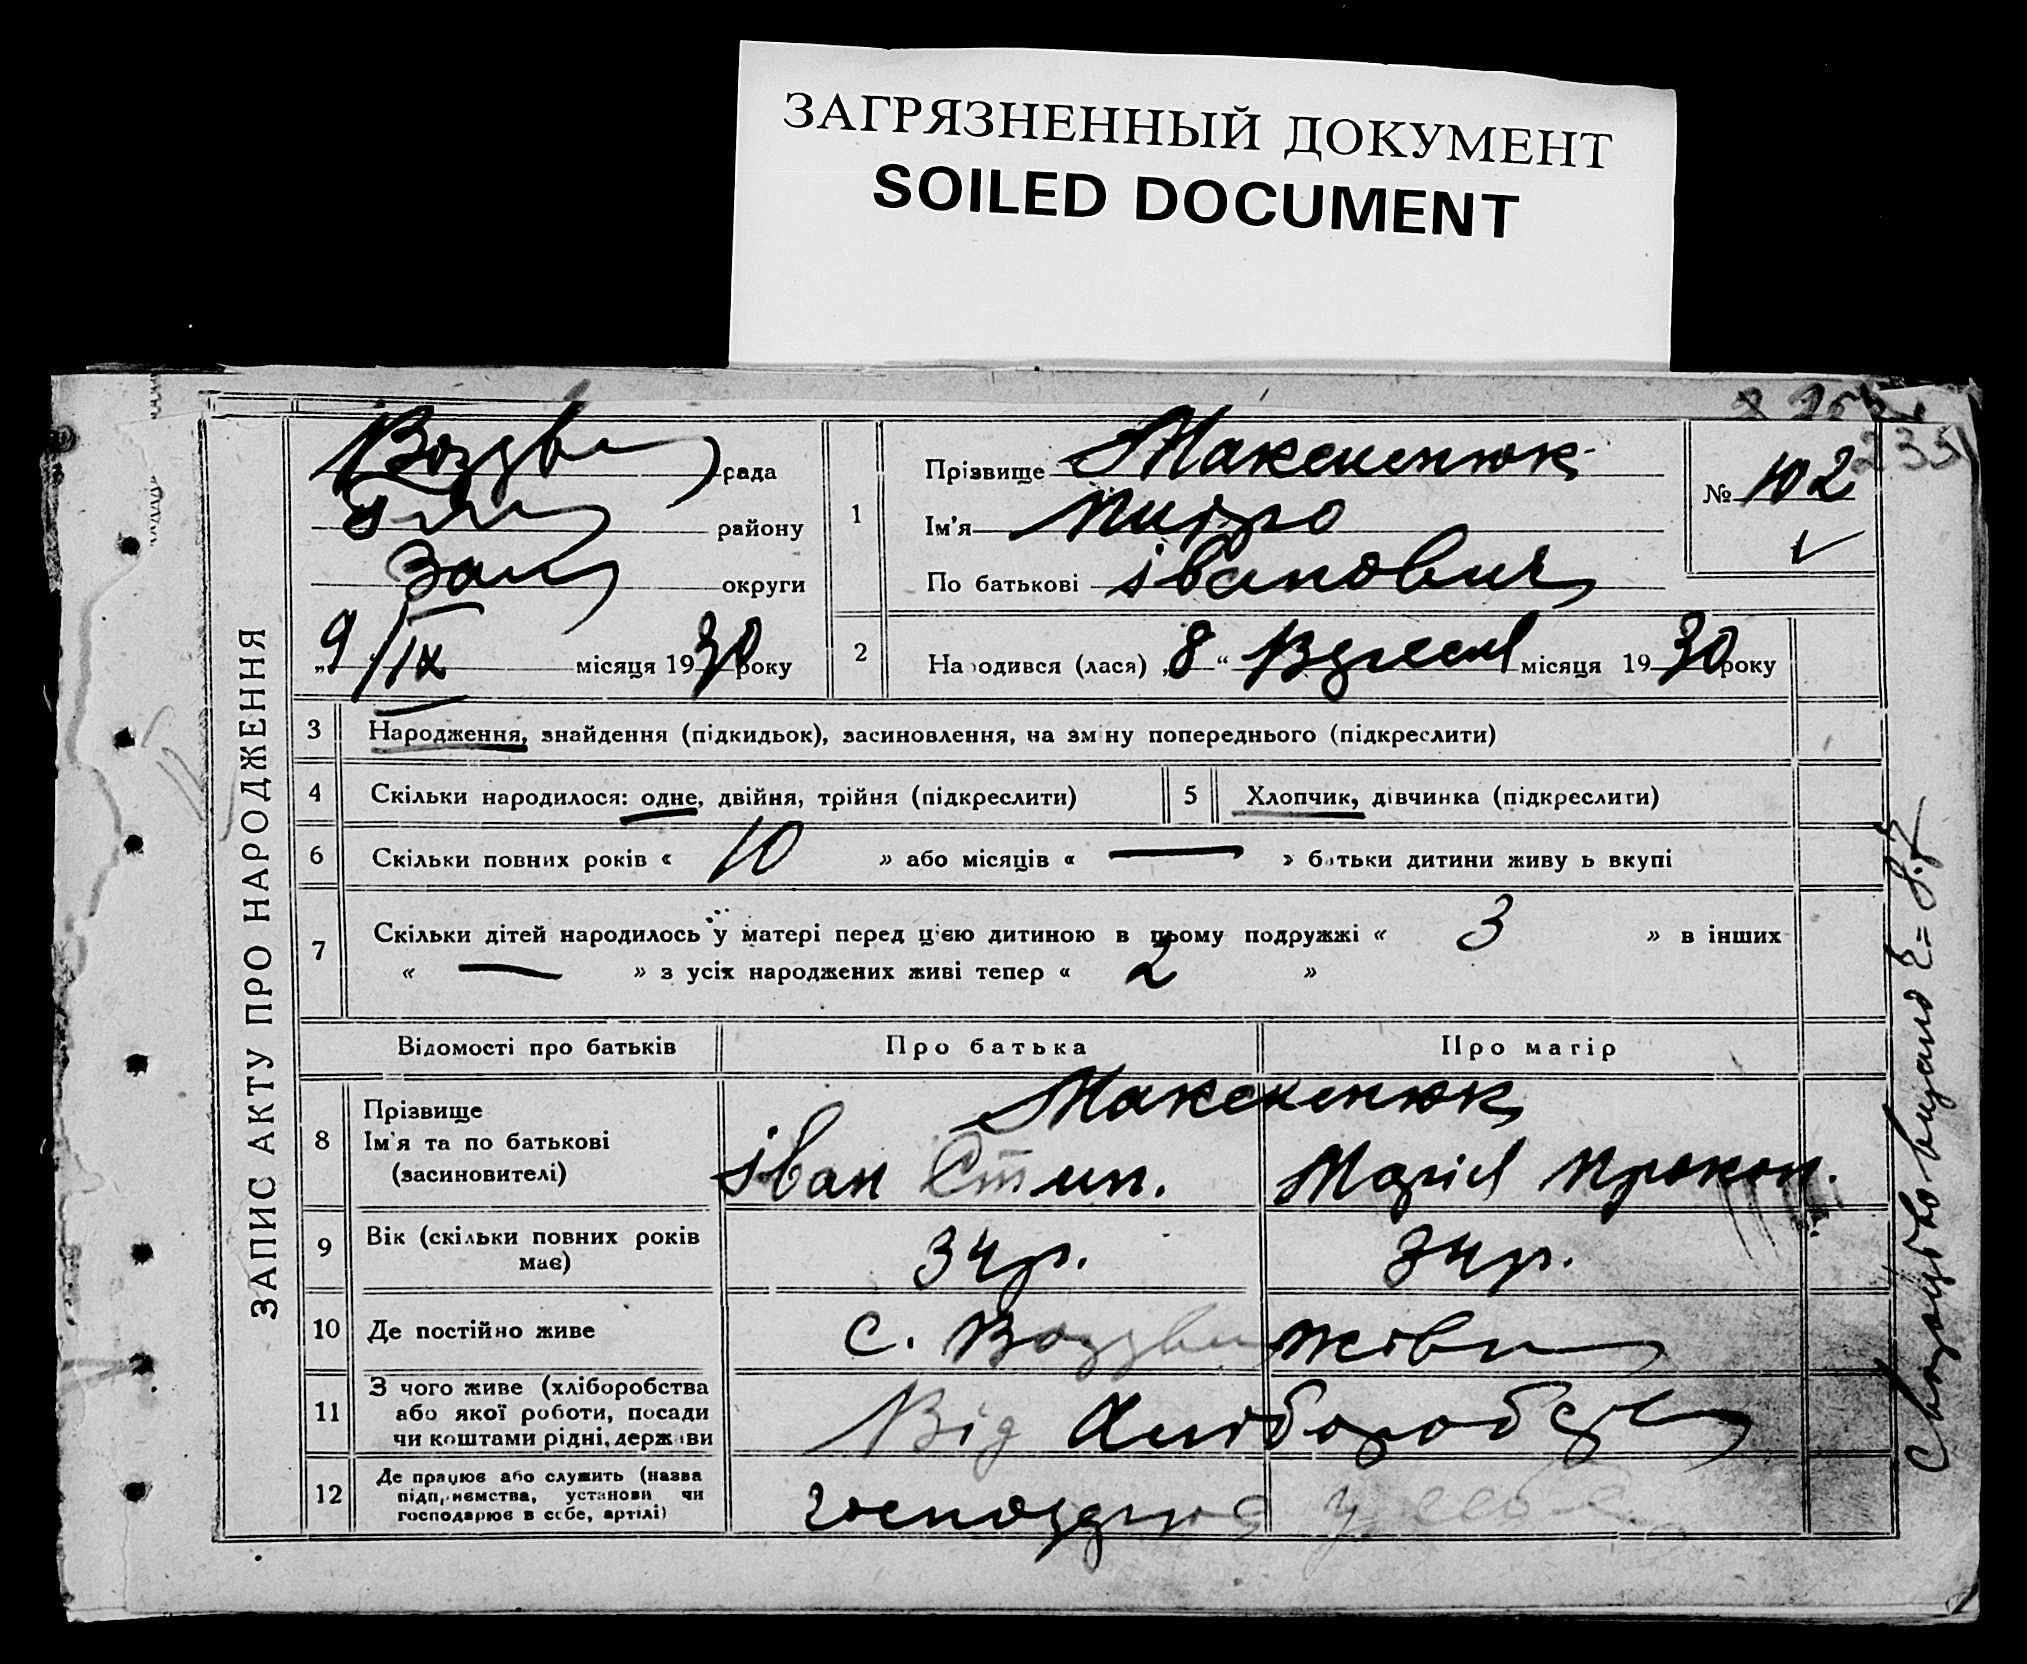 ЗАГРЯЗНЕННЫЙ ДОКУМЕНТ
SOILED DOCUMENT
235
ЗАПИС АКТУ ПРО НАРОДЖЕННЯ
Воздви рада
району
Зап округи
„9/IX місяця 1930 року
1
Прізвище Максименюк
Ім'я Митро
По батькові Іванович
№ 102
2
Народився (лася) „8“ Вересня місяця 1930 року
3 Народження, знайдення (підкидьок), засиновлення, на зміну попереднього (підкреслити)
4 Скільки народилося: одне, двійня, трійня (підкреслити)
5 Хлопчик, дівчинка (підкреслити)
6 Скільки повних років « 10 » або місяців « — » батьки дитини живуть вкупі
7 Скільки дітей народилось у матері перед ц'єю дитиною в цьому подружжі « 3 » в інших
« — » з усіх народжених живі тепер « 2 »
Відомості про батьків Про батька Про матір
8 Прізвище
Ім'я та по батькові
(засиновителі)
Максименюк
Іван Стип. Марія Прокоп.
9 Вік (скільки повних років має)
34 р. 34 р.
10 Де постійно живе
с. Воздвижівк
11 З чого живе (хліборобства
або якої роботи, посади
чи коштами рідні, держави
Від Хліборобст
12 Де працює або служить (назва
підприємства, установи чи
господарює в себе, артілі)
господарює у себе
Свидоцтво видано